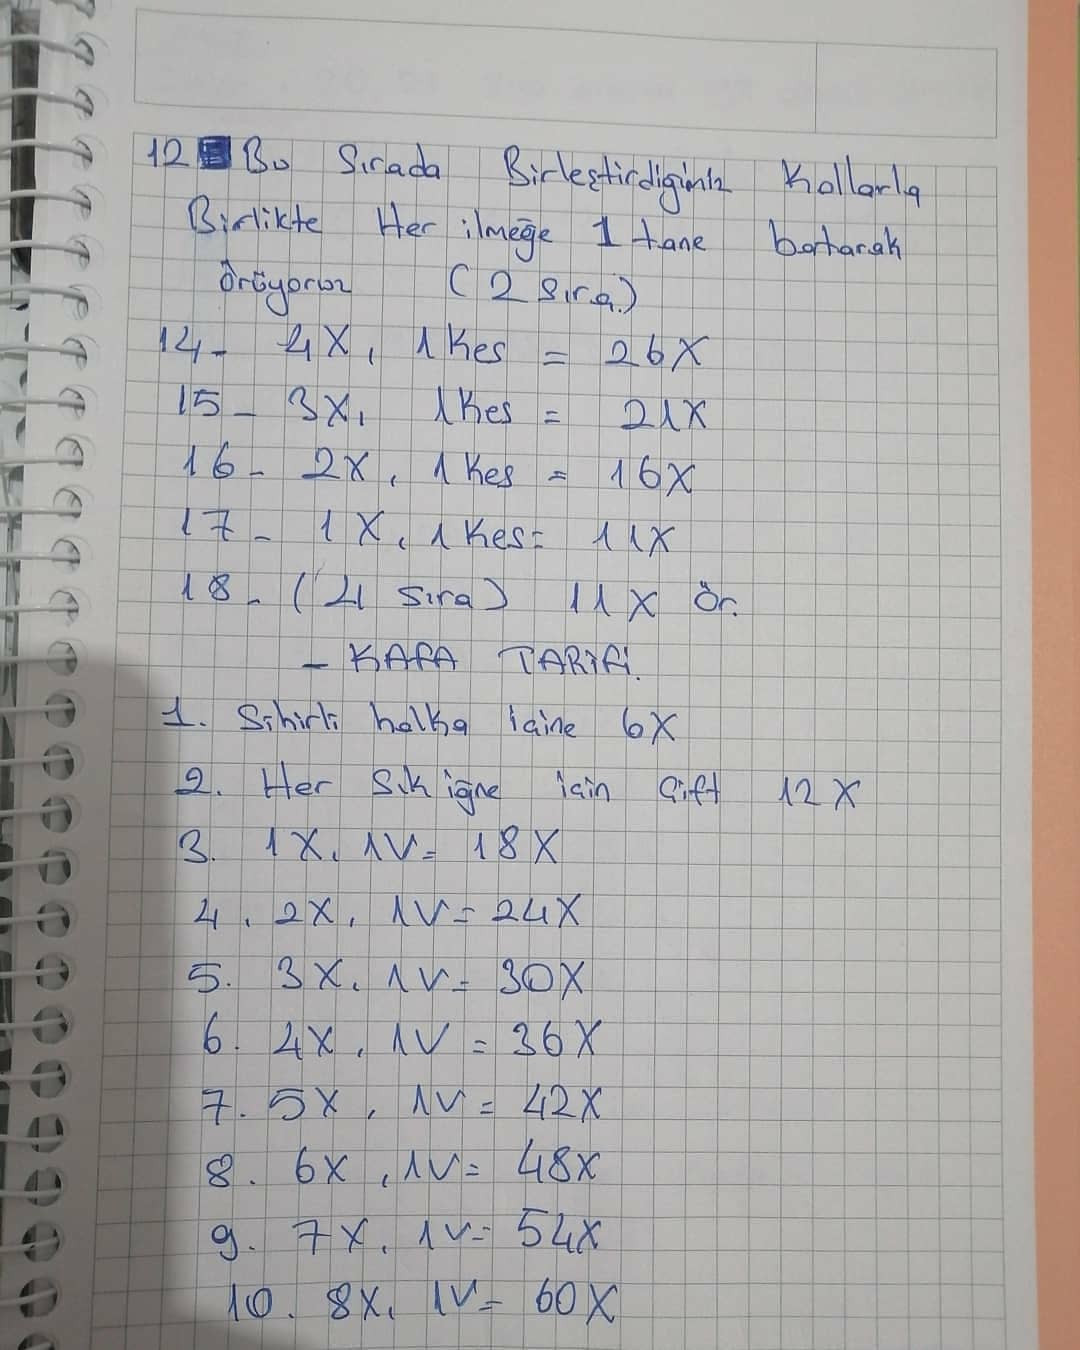 12 Bu Sırada Birleştirdiğimiz Kollarla
Birlikte Her ilmeğe 1 tane batarak
örüyoruz (2 sıra)
14- 4X, 1 Kes = 26X
15- 3X, 1Kes = 21X
16- 2X, 1 Kes = 16X
17- 1X, 1 Kes= 11X
18- (4 sıra) 11X Ör.
- KAFA TARİFİ.
1. Sihirli halka içine 6X
2. Her Sık iğne için Çift 12X
3. 1X, 1V= 18X
4. 2X, 1V= 24X
5. 3X, 1V= 30X
6. 4X, 1V = 36X
7. 5X, 1V= 42X
8. 6X, 1V= 48X
9. 7X, 1V= 54X
10. 8X, 1V= 60X